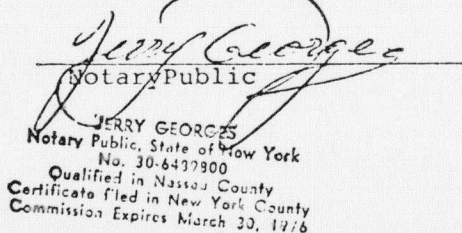 Jerry Georges
Notary Public
JERRY GEORGES
Notary Public, State of New York
No. 30-6437900
Qualified in Nassau County
Certificate filed in New York County
Commission Expires March 30, 1976